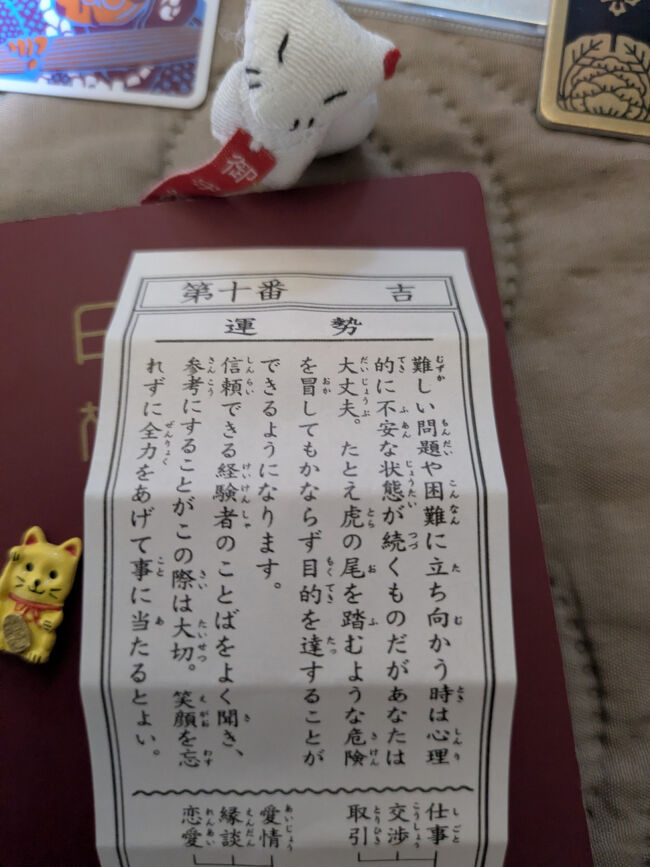 御守
第十番 吉
運勢
難しい問題や困難に立ち向かう時は心理
的に不安な状態が続くものだがあなたは
大丈夫。たとえ虎の尾を踏むような危険
を冒してもかならず目的を達することが
できるようになります。
信頼できる経験者のことばをよく聞き、
参考にすることがこの際は大切。笑顔を忘
れずに全力をあげて事に当たるとよい。
仕事
交渉
取引
愛情
縁談
恋愛
日